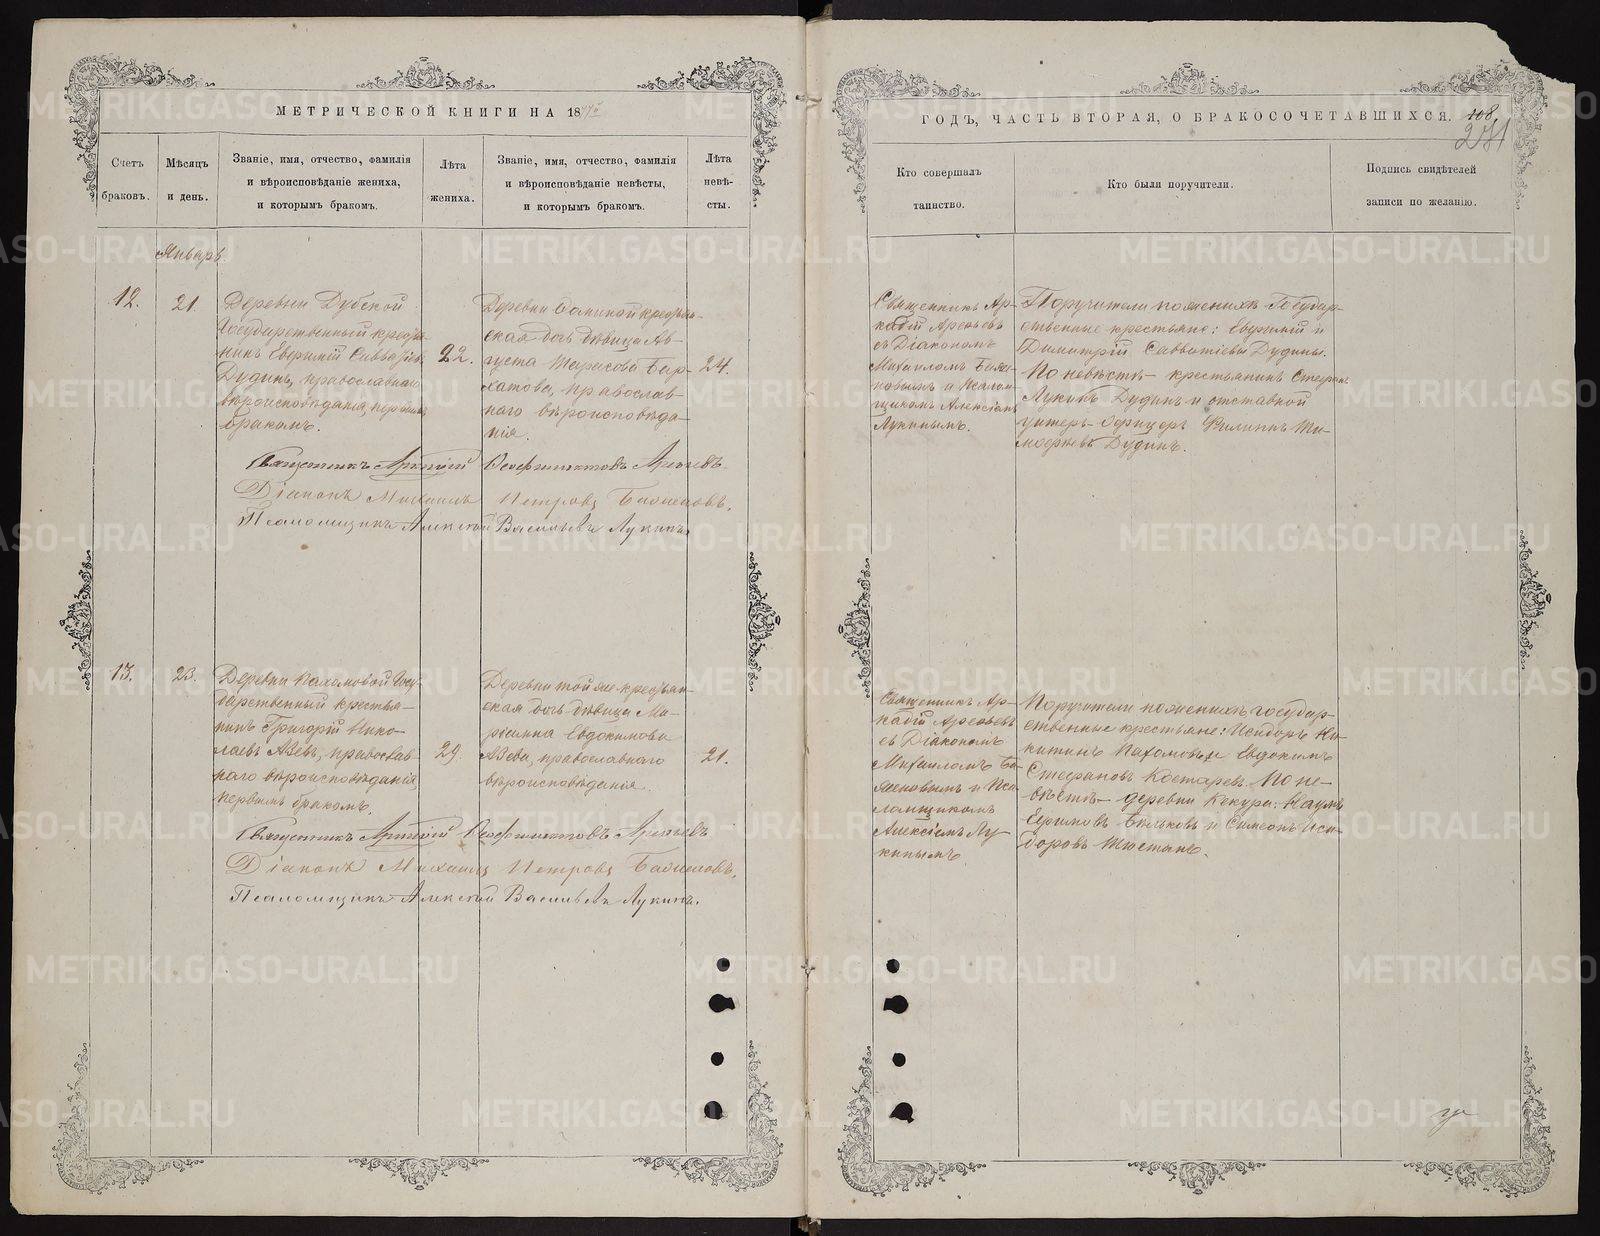 МЕТРИЧЕСКОЙ КНИГИ НА 18
Счетъ браковъ.
Мѣсяцъ и день.
Званіе, имя, отчество, фамилія и вѣроисповѣданіе жениха, и которымъ бракомъ.
Лѣта жениха.
Званіе, имя, отчество, фамилія и вѣроисповѣданіе невѣсты, и которымъ бракомъ.
Лѣта невѣ-
сты.
Январь.
12.
21.
Деревни Дубской
Государственный крестья-
нинъ Евѳимій Савватіевъ
Дудинъ, православнаго
вѣроисповѣданія, первымъ
бракомъ.
22.
Деревни крестьян-
ская дочь дѣвица Ав-
густа Тарасова Бар-
хатова, православ-
наго вѣроисповѣда-
нія.
24.
Священникъ Аркадій Ѳеофилактовъ Арефьевъ.
Діаконъ Михаилъ Петровъ Баженовъ.
Псаломщикъ Алексій Васильевъ Лукинъ.
13.
23.
Деревни Пахомовой Госу-
дарственный крестья-
нинъ Григорій Нико-
лаевъ Азевъ, православ-
наго вѣроисповѣданія,
первымъ бракомъ.
29.
Деревни той же крестьян-
ская дочь дѣвица Ма-
ріанна Евдокимова
Азева, православнаго
вѣроисповѣданія.
21.
Священникъ Аркадій Ѳеофилактовъ Арефьевъ
Діаконъ Михаилъ Петровъ Баженовъ.
Псаломщикъ Алексій Васильевъ Лукинъ.
ГОДЪ, ЧАСТЬ ВТОРАЯ, О БРАКОСОЧЕТАВШИХСЯ.
108.
Кто совершалъ таинство.
Кто были поручители.
Подпись свидѣтелей записи по желанію.
Священникъ Ар-
кадій Арефьевъ
съ Діакономъ
Михаиломъ Баже-
новымъ и Псалом-
щикомъ Алексіемъ
Лукинымъ.
Поручители по женихѣ Государ-
ственные крестьяне: Евѳимій и
Димитрій Савватіевы Дудины.
По невѣстѣ – крестьянинъ Стефанъ
Лукинъ Дудинъ и отставной
унтеръ-офицеръ Филиппъ Ти-
моѳеевъ Дудинъ.
Священникъ Ар-
кадій Арефьевъ
съ Діакономъ
Михаиломъ Ба-
женовымъ и Пса-
ломщикомъ
Алексіемъ Лу-
кинымъ.
Поручители по женихѣ государ-
ственные крестьяне: Исидоръ Ни-
китинъ Пахомовъ и Евдокимъ
Стефановъ Костаревъ. По не-
вѣстѣ – деревни Кекура: Наумъ
Ефимовъ Бѣльковъ и Симеонъ Иси-
доровъ
METRIKI.GASO-URAL.RU